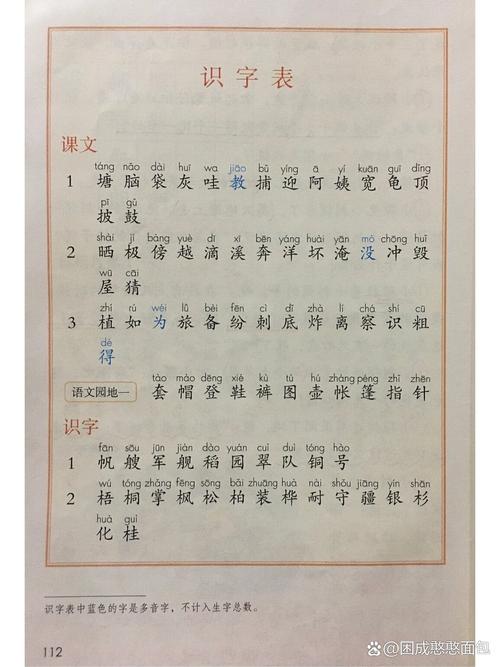 识字表
课文
táng nǎo dài huī wa jiāo bǔ yíng ā yí kuān guī dǐng
1 塘脑袋灰哇教捕迎阿姨宽龟顶
pī gǔ
披鼓
shài jí bàng yuè dī xī bēn yáng huài yān mò chōng huǐ
2 晒极傍越滴溪奔洋坏淹没冲毁
wū cāi
屋猜
zhí rú wéi lǚ bèi fēn cì dǐ zhà lí chá shí cū
3 植如为旅备纷刺底炸离察识粗
dé
得
tào mào dēng xié kù tú hú zhàng péng zhǐ zhēn
语文园地一 套帽登鞋裤图壶帐篷指针
识字
fān sōu jūn jiàn dào yuán cuì duì tóng hào
1 帆艘军舰稻园翠队铜号
wú tóng zhǎng fēng sōng bǎi zhuāng huà nài shǒu jiāng yín shān
2 梧桐掌枫松柏装桦耐守疆银杉
huà guì
化桂
识字表中蓝色的字是多音字，不计入生字总数。
112
@困成憨憨面包